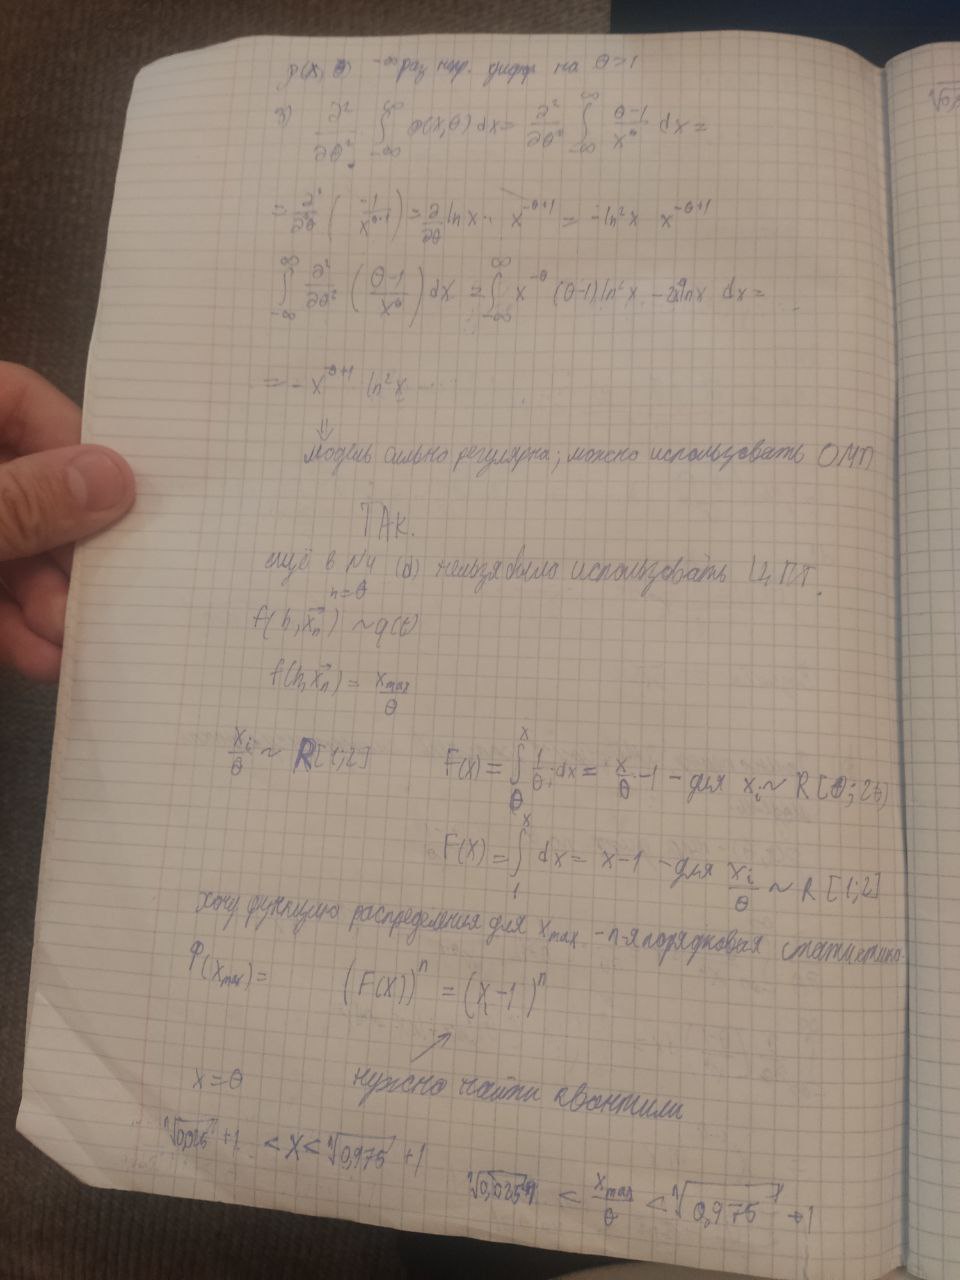 p(x, θ) -∞ раз диф. на θ>1
3) ∂²/∂θ² ∫_{-∞}^{∞} p(x,θ) dx = ∂²/∂θ² ∫_{-∞}^{∞} (θ-1)/x^θ dx =
= ∂²/∂θ² ( -1/x^{θ-1} ) = ∂/∂θ ln x · x^{-θ+1} = -ln²x x^{-θ+1}
∫_{-∞}^{∞} ∂²/∂θ² ( (θ-1)/x^θ ) dx = ∫_{-∞}^{∞} x^{-θ} (θ-1) ln²x - 2x^{-θ} ln x dx =
= - x^{-θ+1} ln²x
⇓
модель сильно регулярна; можно использовать ОМП
ТАК.
ещё в №4 (d) нельзя было использовать ЦПТ.
h=θ
f(h, x⃗_n) ~ q(t)
f(h, x⃗_n) = x_max/θ
x_i/θ ~ R[1;2] F(x) = ∫_θ^x 1/θ dx = x/θ - 1 - для x_i ~ R[θ; 2θ]
F(x) = ∫_1^x dx = x-1 - для x_i/θ ~ R[1;2]
хочу функцию распределения для x_max - n-я порядковая статистика
Φ(x_max) = (F(x))^n = (x-1)^n
x = θ нужно найти квантили
ⁿ√0,025 + 1 < x < ⁿ√0,975 + 1
ⁿ√0,025 + 1 < x_max/θ < ⁿ√0,975 + 1
ⁿ√0,0